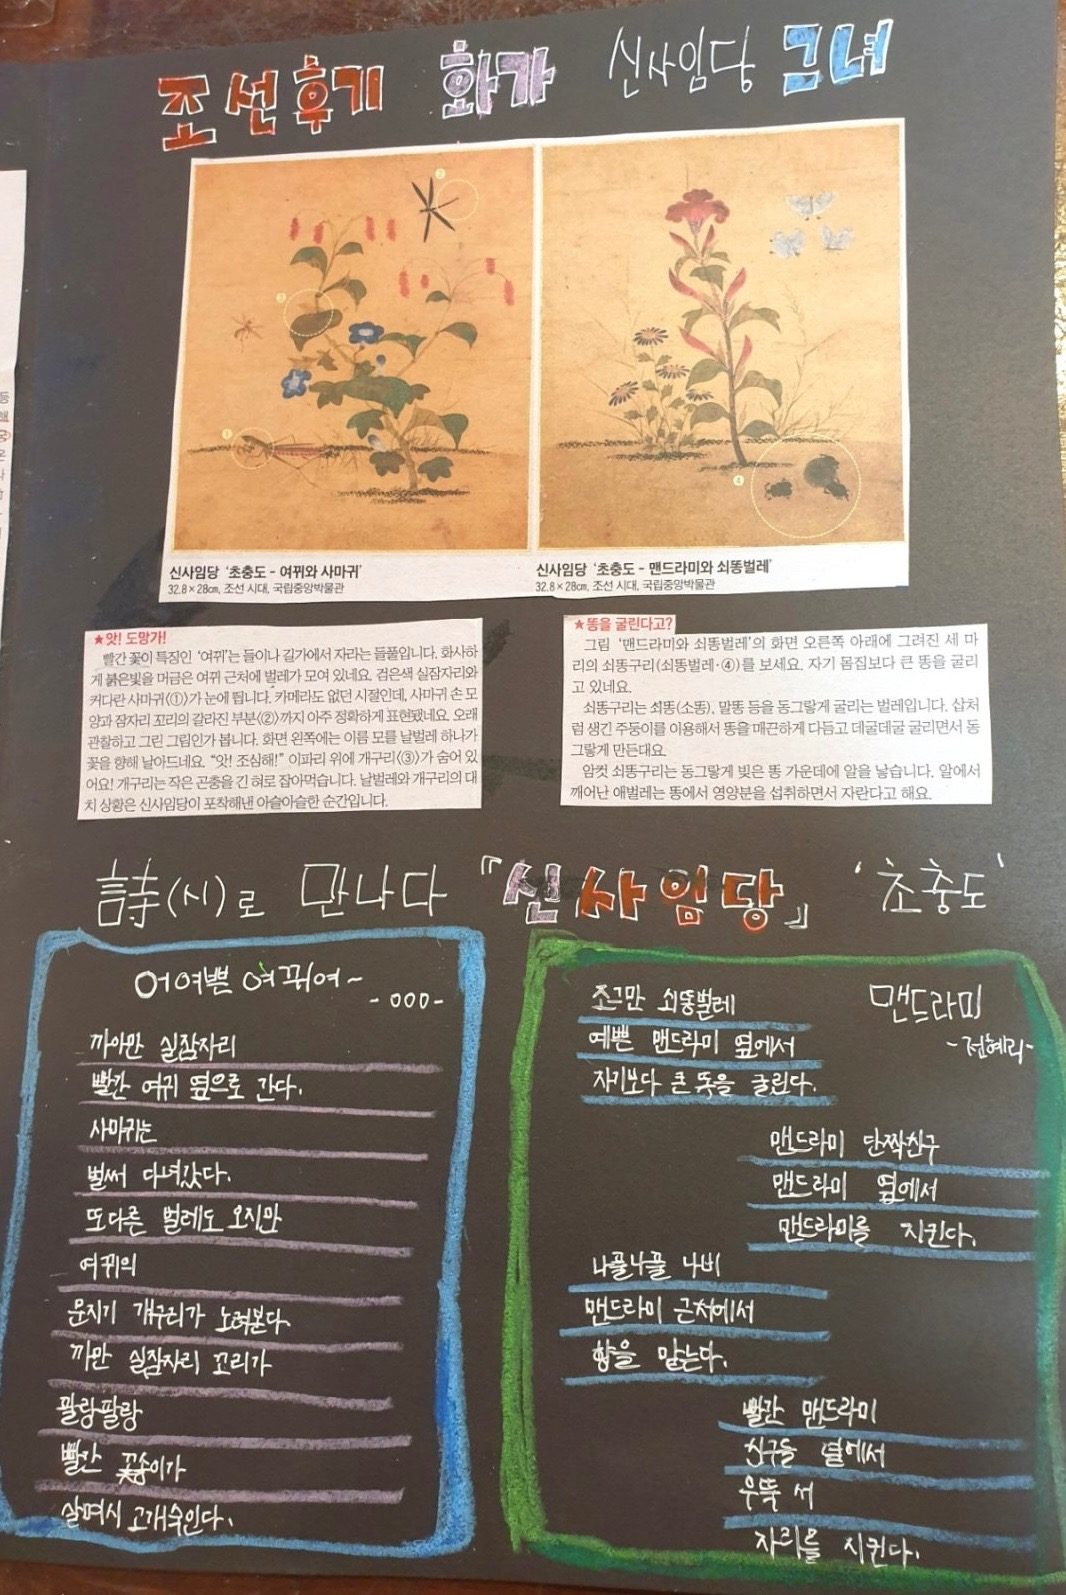 조선후기 화가 신사임당 그녀
②
③
①
④
신사임당 '초충도 - 여뀌와 사마귀'
32.8 × 28㎝, 조선 시대, 국립중앙박물관
신사임당 '초충도 - 맨드라미와 쇠똥벌레'
32.8 × 28㎝, 조선 시대, 국립중앙박물관
★앗! 도망가!
빨간 꽃이 특징인 '여뀌'는 들이나 길가에서 자라는 들풀입니다. 화사하
게 붉은빛을 머금은 여뀌 근처에 벌레가 모여 있네요. 검은색 실잠자리와
커다란 사마귀(①)가 눈에 띕니다. 카메라도 없던 시절인데, 사마귀 손 모
양과 잠자리 꼬리의 갈라진 부분(②)까지 아주 정확하게 표현됐네요. 오래
관찰하고 그린 그림인가 봅니다. 화면 왼쪽에는 이름 모를 날벌레 하나가
꽃을 향해 날아드네요. "앗! 조심해!" 이파리 위에 개구리(③)가 숨어 있
어요! 개구리는 작은 곤충을 긴 혀로 잡아먹습니다. 날벌레와 개구리의 대
치 상황은 신사임당이 포착해낸 아슬아슬한 순간입니다.
★똥을 굴린다고?
그림 '맨드라미와 쇠똥벌레'의 화면 오른쪽 아래에 그려진 세 마
리의 쇠똥구리(쇠똥벌레·④)를 보세요. 자기 몸집보다 큰 똥을 굴리
고 있네요.
쇠똥구리는 쇠똥(소똥), 말똥 등을 동그랗게 굴리는 벌레입니다. 삽처
럼 생긴 주둥이를 이용해서 똥을 매끈하게 다듬고 데굴데굴 굴리면서 동
그랗게 만든대요.
암컷 쇠똥구리는 동그랗게 빚은 똥 가운데에 알을 낳습니다. 알에서
깨어난 애벌레는 똥에서 영양분을 섭취하면서 자란다고 해요.
詩(시)로 만나다 『신사임당』 '초충도'
어여쁜 여뀌여~
-ㅇㅇㅇ-
까아만 실잠자리
빨간 여뀌 옆으로 간다.
사마귀는
벌써 다녀갔다.
또다른 벌레도 오지만
여뀌의
문지기 개구리가 노려본다.
까만 실잠자리 꼬리가
팔랑팔랑
빨간 꽃송이가
살며시 고개숙인다.
맨드라미
-전혜리-
조그만 쇠똥벌레
예쁜 맨드라미 옆에서
자기보다 큰 똥을 굴린다.
맨드라미 단짝친구
맨드라미 옆에서
맨드라미를 지킨다.
나풀나풀 나비
맨드라미 근처에서
향을 맡는다.
빨간 맨드라미
친구들 옆에서
우뚝 서
자리를 지킨다.